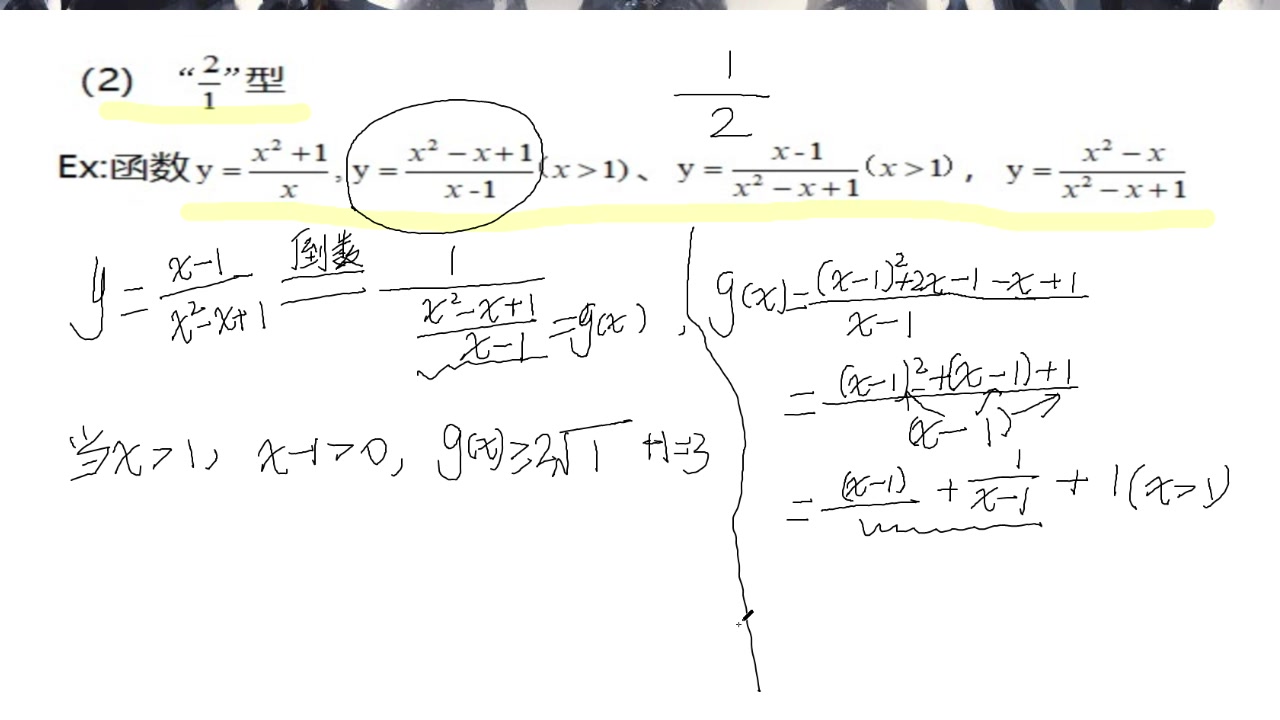 (2) “2/1”型
1/2
Ex:函数 y = (x² + 1)/x , y = (x² − x + 1)/(x - 1) (x > 1)、 y = (x - 1)/(x² − x + 1) (x > 1) , y = (x² − x)/(x² − x + 1)
y = (x−1)/(x²−x+1) 倒数 = 1/((x²−x+1)/(x−1)) = g(x) ,
当x > 1, x−1 > 0, g(x) ≥ 2√1 + 1 = 3
g(x) = ((x−1)² + 2x − 1 − x + 1)/(x−1)
= ((x−1)² + (x−1) + 1)/(x−1)
= (x−1) + 1/(x−1) + 1 (x > 1)